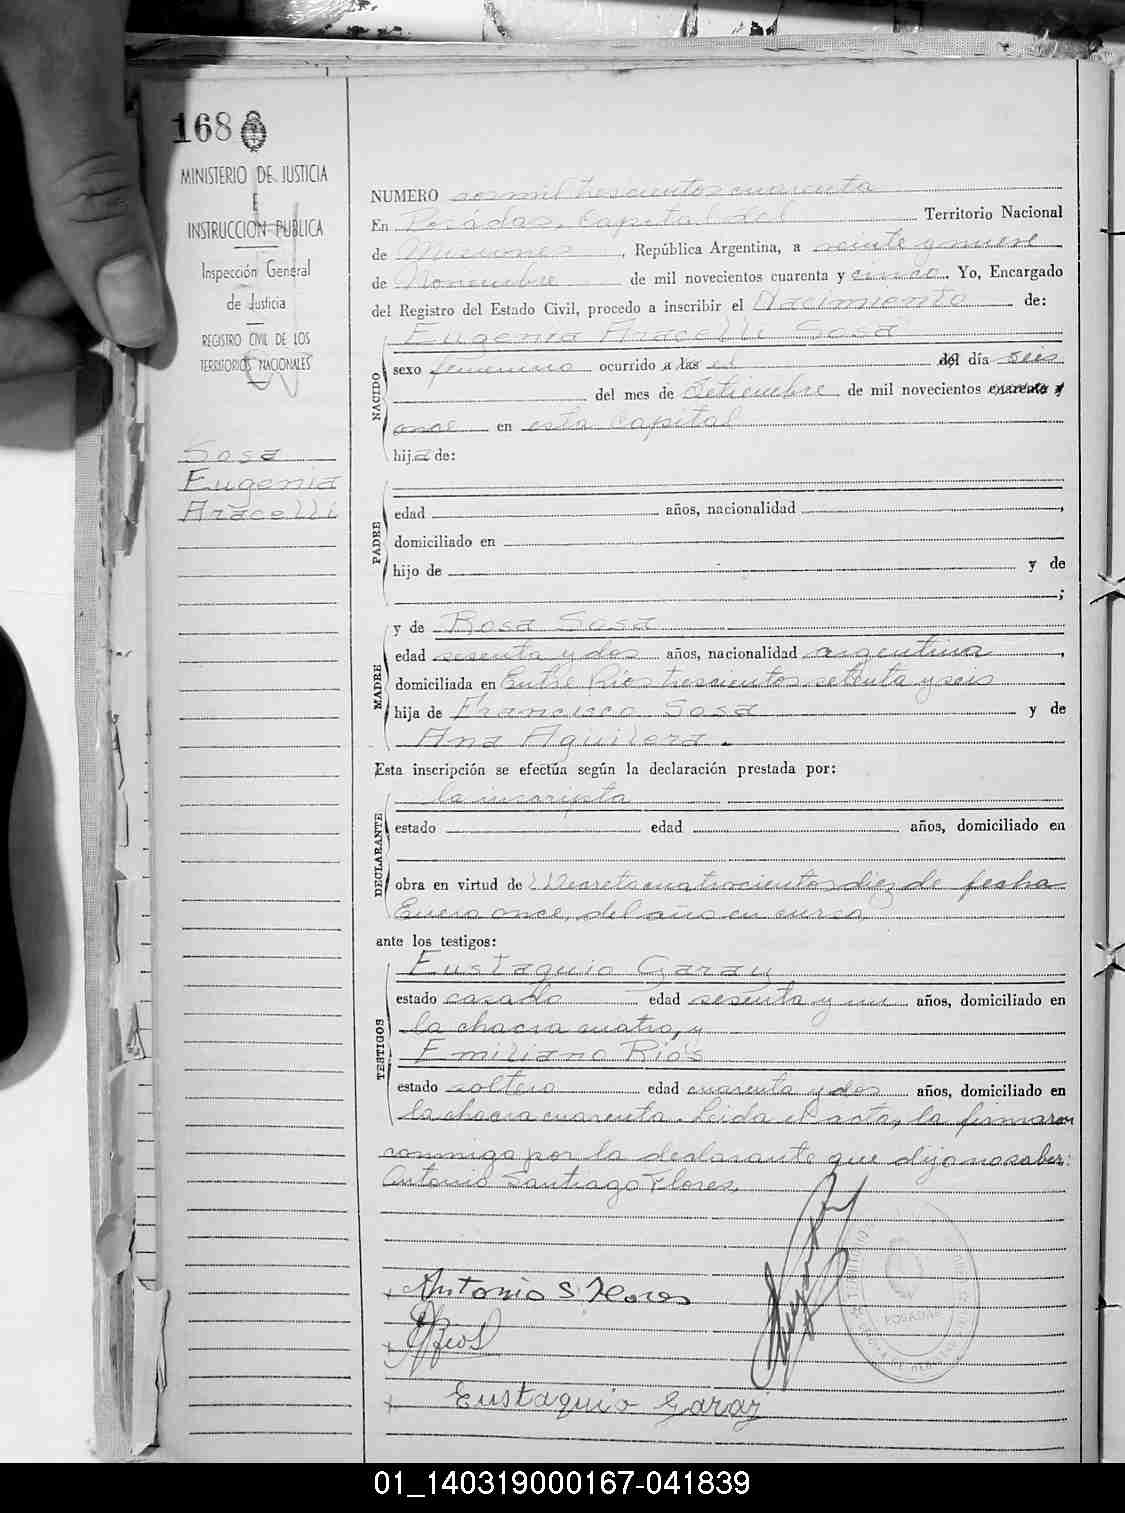 168
MINISTERIO DE JUSTICIA
E
INSTRUCCION PUBLICA
Inspección General
de Justicia
REGISTRO CIVIL DE LOS
TERRITORIOS NACIONALES
Sosa
Eugenia
Aracelli
NUMERO mil trescientos cuarenta
En Posadas, Capital del Territorio Nacional
de Misiones, República Argentina, a veinte y nueve
de Noviembre de mil novecientos cuarenta y cinco. Yo, Encargado
del Registro del Estado Civil, procedo a inscribir el Nacimiento de:
NACIDO
Eugenia Aracelli Sosa
sexo femenino ocurrido a las el del día seis
del mes de Setiembre de mil novecientos cuarenta y
once en esta Capital
hija de:
PADRE
edad años, nacionalidad ,
domiciliado en
hijo de y de
;
MADRE
y de Rosa Sosa
edad sesenta y dos años, nacionalidad argentina,
domiciliada en Entre Rios trescientos setenta y seis
hija de Francisco Sosa y de
Ana Aguilera.
Esta inscripción se efectúa según la declaración prestada por:
DECLARANTE
la inscripta
estado edad años, domiciliado en
obra en virtud de Decreto cuatrocientos diez de fecha
Enero once, del año en curso,
ante los testigos:
TESTIGOS
Eustaquio Garay
estado casado edad sesenta y un años, domiciliado en
la chacra cuatro, y
Emiliano Rios
estado soltero edad cuarenta y dos años, domiciliado en
la chacra cuarenta. Leida el acta, la firmaron
conmigo por la declarante que dijo no saber:
Antonio Santiago Flores.
Antonio S. Flores
ERios
Eustaquio Garay
POSADAS
01_140319000167-041839